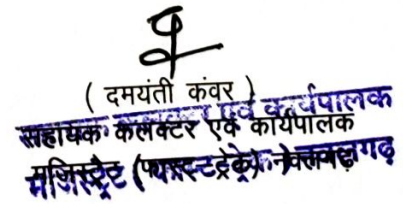 ( दमयंती कंवर )
सहायक कलक्टर एवं कार्यपालक
मजिस्ट्रेट (फास्ट ट्रेक) नवलगढ़